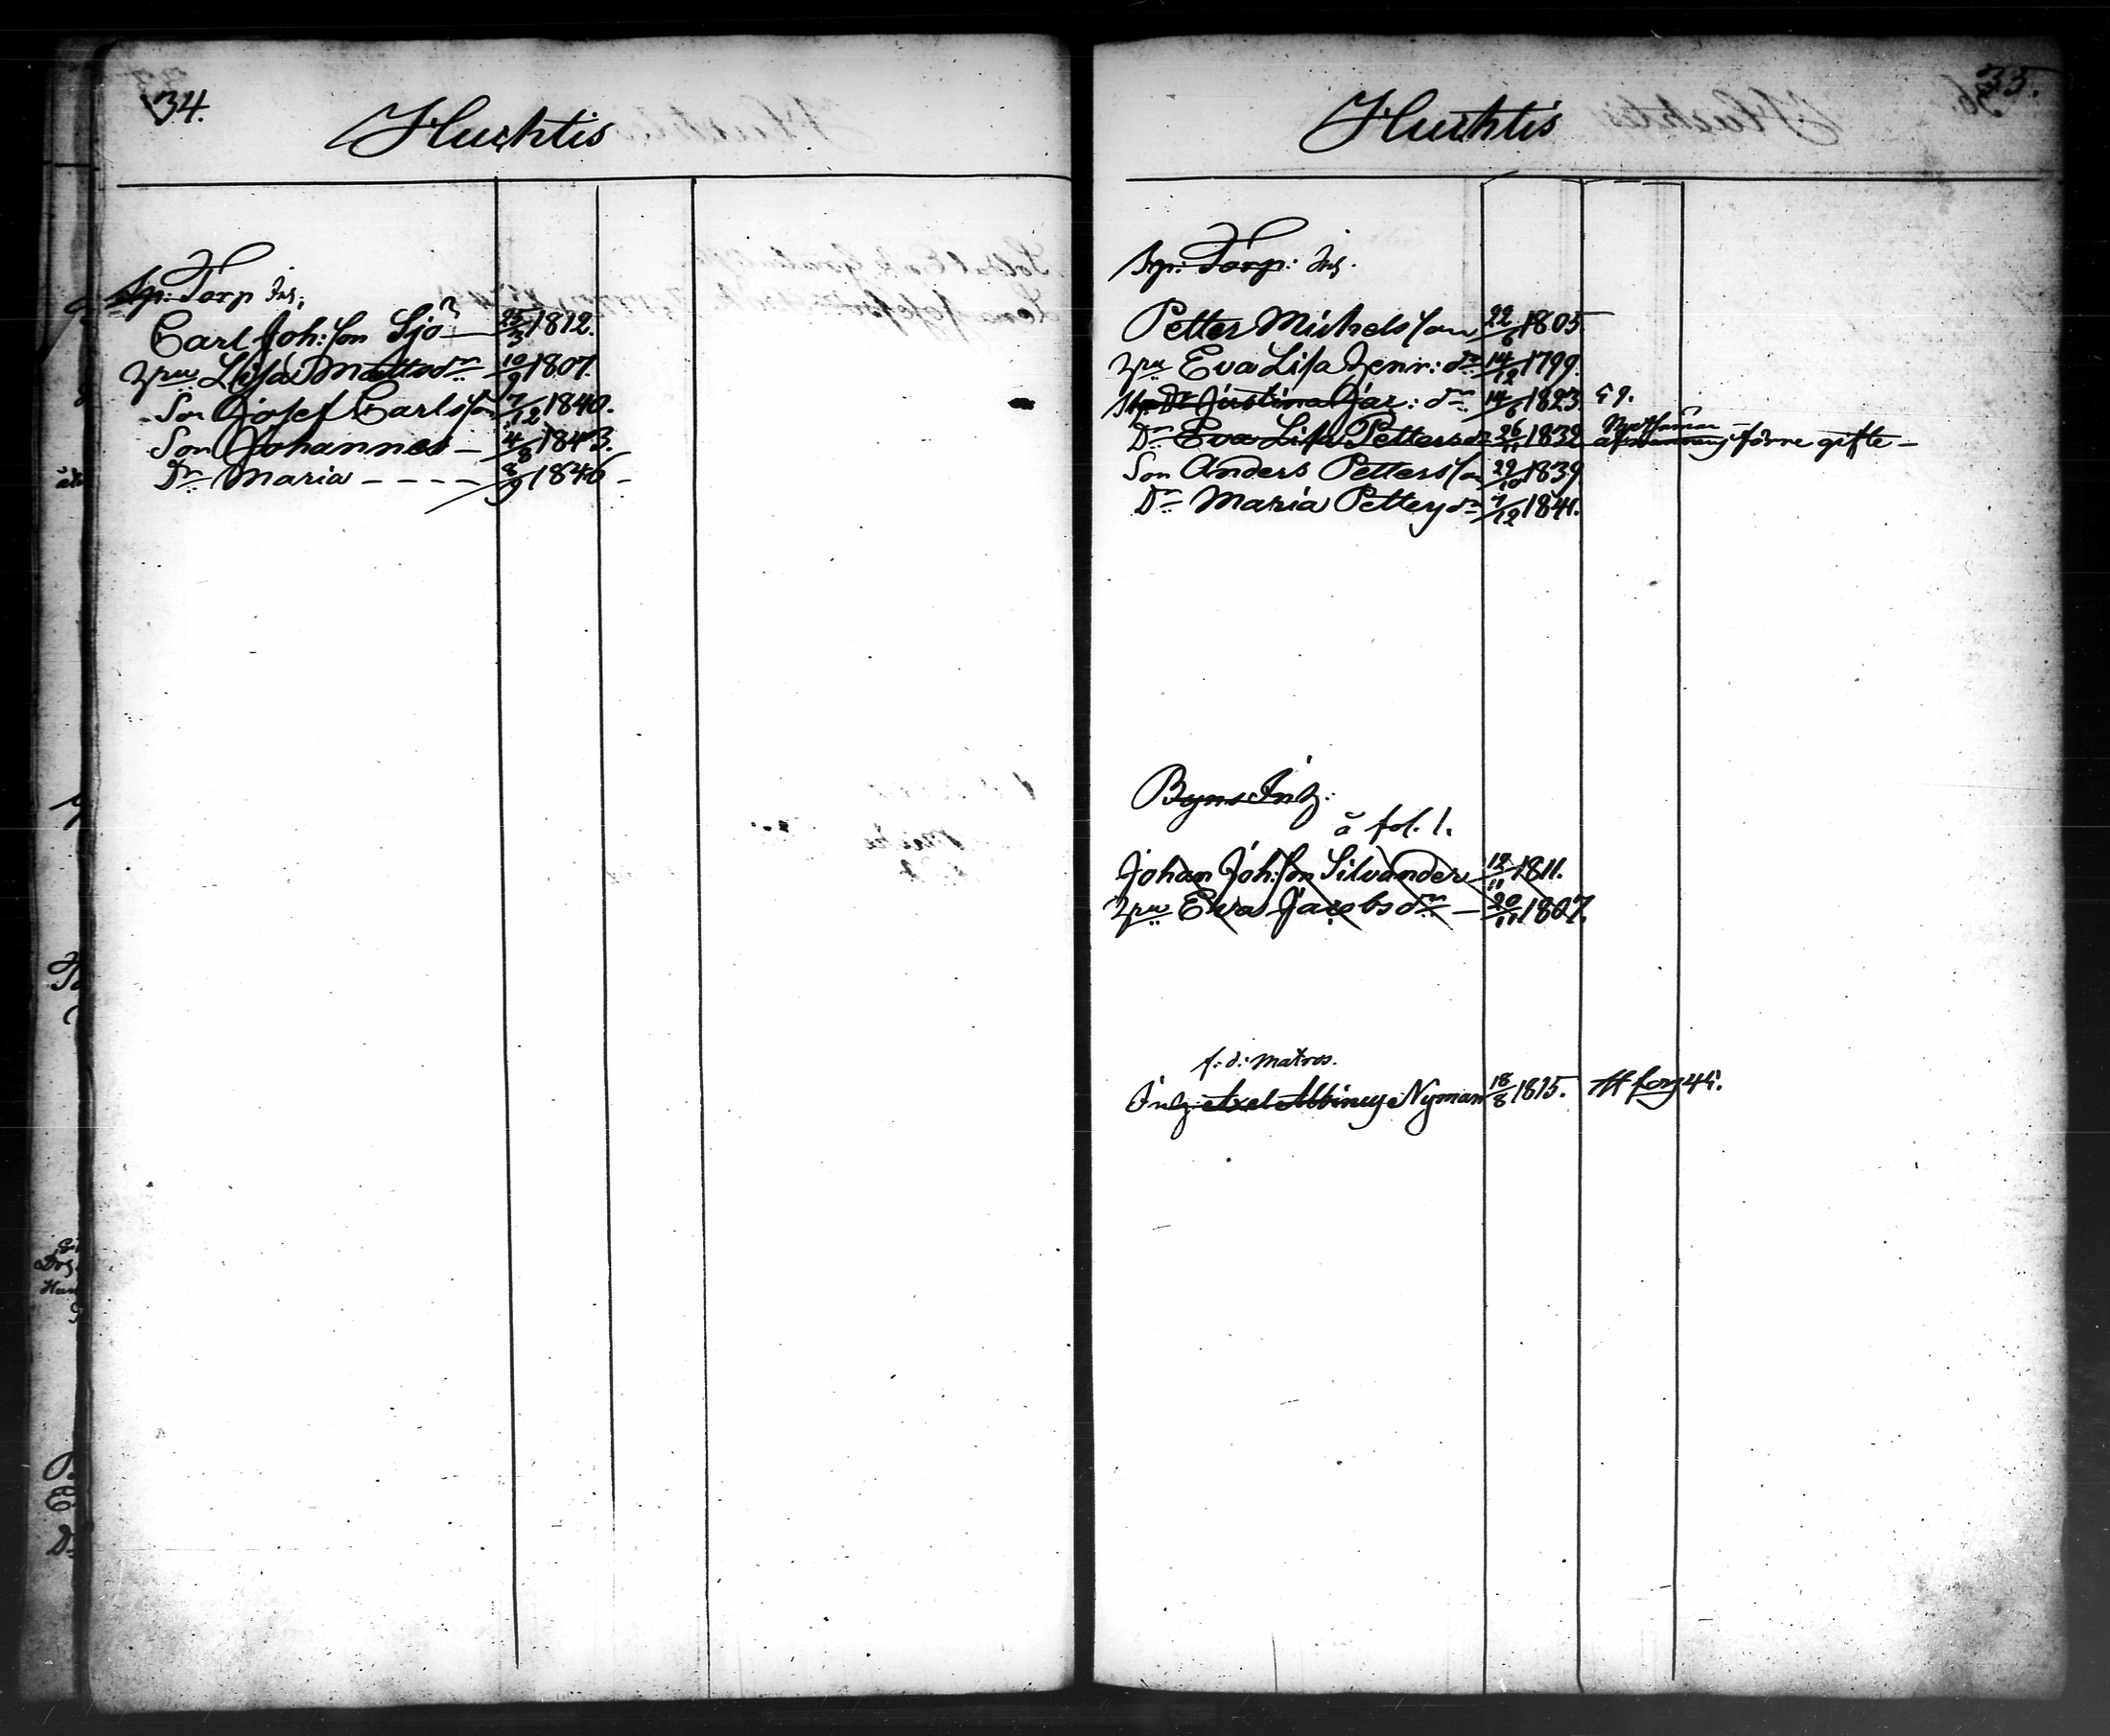 34.
Huchtis
Torp
Carl Joh:son Sjö
25/3 1812.
Lisa Mattsdr
10/9 1807.
Son Josef Carlsson
7/12 1840.
Son Johannes —
4/8 1843.
Dr Maria - - - -
8/9 1846 -
35.
Huchtis
Torp:
Petter Michelsson
22/6 1805
Eva Lisa Henr: dr
14/12 1799.
Justina Jac: dr
14/6 1823.
Dr Eva Lisa Pettersdr
26/11 1832
förre gifte —
Son Anders Petterson
29/10 1839
Dr Maria Pettersdr
7/12 1841.
Byns Inh:
å fol. 1.
Johan Joh:son Silvander
12/11 1811.
Eva Jacobsdr —
20/11 1807.
f: d: Matros.
Axel Nyman
18/8 1815.